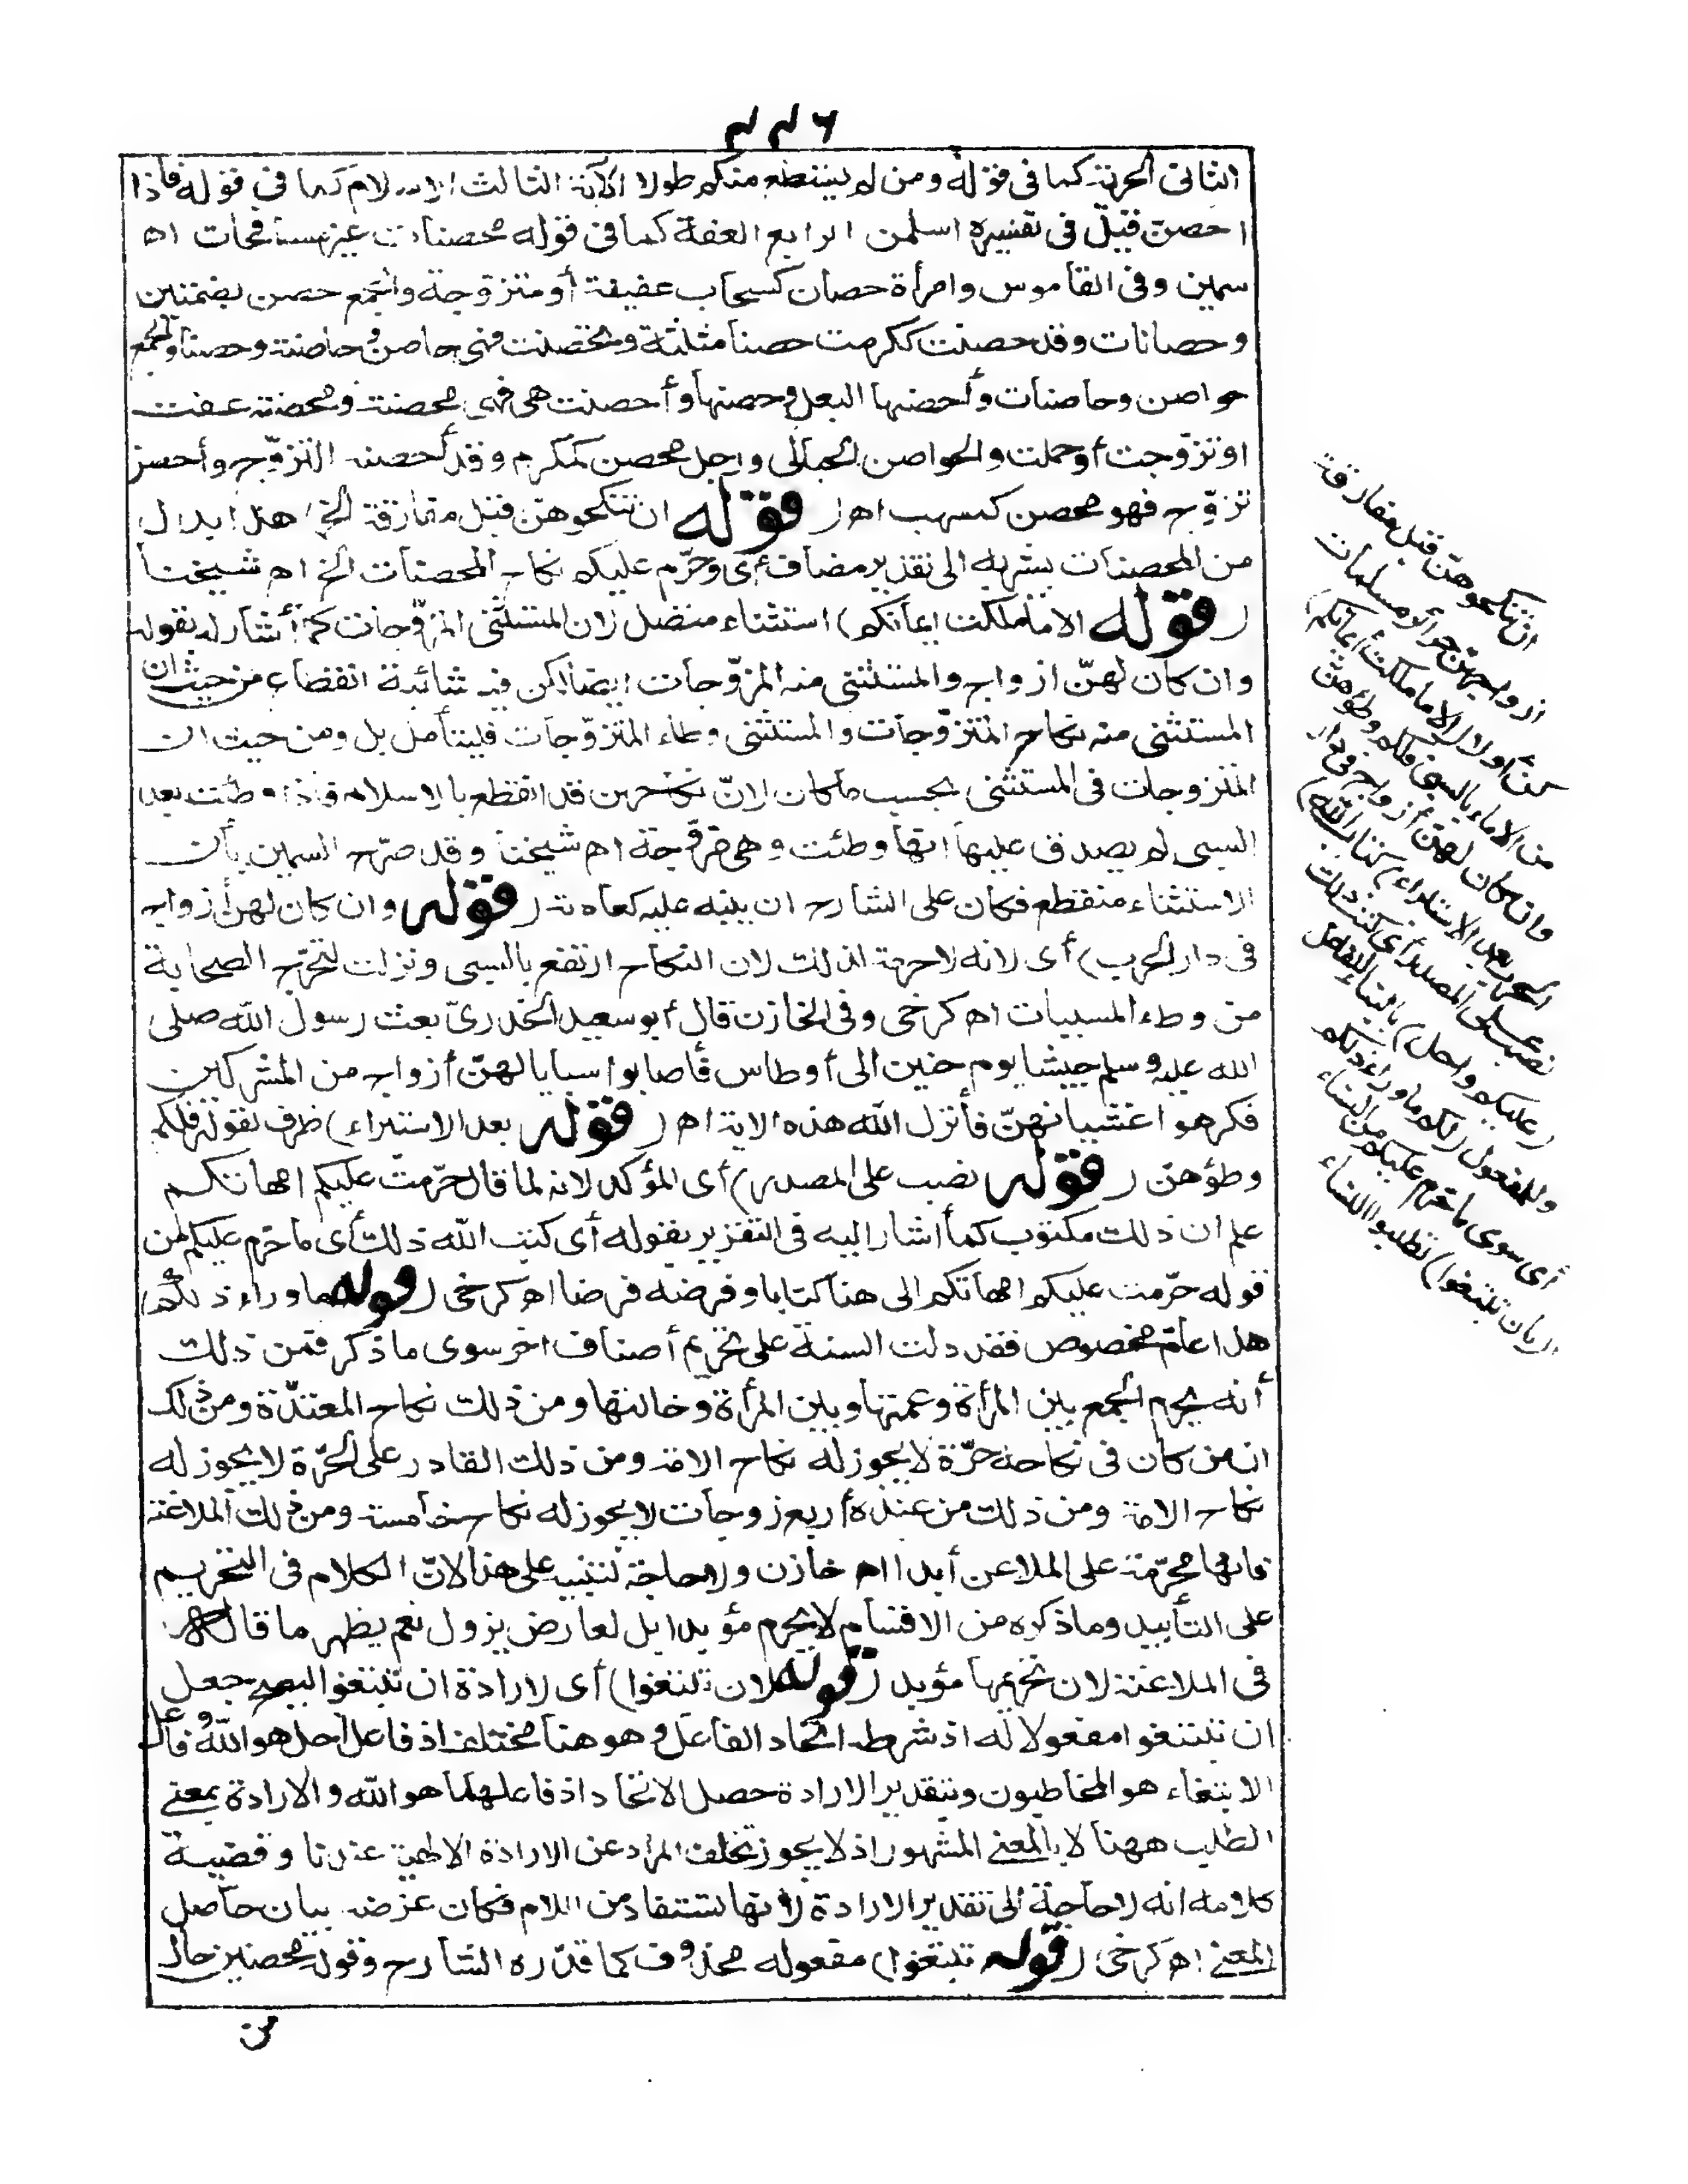 ٤٤٦
الثانى الحرية كما فى قوله ومن لم يستطع منكم طولا الآية الثالث الاسلام كما فى قوله فاذا
احصن قيل فى تفسيره اسلمن الرابع العفة كما فى قوله محصنات غير مسافحات اه
سمين وفى القاموس وامرأة حصان كسحاب عفيفة أو متزوجة والجمع حصن بضمتين
وحصانات وقد حصنت ككرمت حصنا مثلثة وتحصنت فهى حاصن وحاصنة وحصناء والجمع
حواصن وحاصنات وأحصنها البعل وحصنها وأحصنت هى فهى محصنة ومحصنة عفت
او تزوّجت أو حملت والحواصن الحبالى ورجل محصن كمكرم وقد أحصنه التزوّج وأحصن
تزوّج فهو محصن كمسهب اه (قوله ان تنكحوهنّ قبل مفارقة الخ) هذا بدل
من المحصنات يشير به الى تقدير مضاف أى وحرّم عليكم نكاح المحصنات الخ اه شيخنا
(قوله الا ما ملكت ايمانكم) استثناء متصل لان المستثنى المزوّجات كما أشار له بقوله
وان كان لهنّ ازواج والمستثنى منه المزوّجات ايضا لكن فيه شائبة انقطاع من حيث ان
المستثنى منه نكاح المتزوّجات والمستثنى وطاء المتزوّجات فليتأمل بل ومن حيث ان
المتزوجات فى المستثنى بحسب ما كان لانّ نكاحهن قد انقطع بالاسلام فاذا وطئت بعد
السبى لم يصدق عليها انها وطئت وهى مزوّجة اه شيخنا وقد صرّح السمين بأن
الاستثناء منقطع فكان على الشارح ان ينبه عليه كعادته (قوله وان كان لهنّ أزواج
فى دار الحرب) أى لانه لا حرمة لذلك لان النكاح ارتفع بالسبى ونزلت لتحرّج الصحابة
من وطء المسبيات اه كرخى وفى الخازن قال أبو سعيد الخدرىّ بعث رسول الله صلى
الله عليه وسلم جيشا يوم حنين الى أوطاس فأصابوا سبايا لهنّ أزواج من المشركين
فكرهوا غشيانهنّ فأنزل الله هذه الاية اه (قوله بعد الاستبراء) ظرف لقوله فلكم
وطؤهن (قوله نصب على المصدر) أى المؤكد لانه لما قال حرّمت عليكم امهاتكم
علم ان ذلك مكتوب كما أشار اليه فى التقرير بقوله أى كتب الله ذلك أى ما حرم عليكم من
قوله حرّمت عليكم امهاتكم الى هنا كتابا وفرضه فرضا اه كرخى (قوله ما وراء ذلكم)
هذا عامّ مخصوص فقد دلت السنة على تحريم أصناف اخر سوى ما ذكر فمن ذلك
أنه يحرم الجمع بين المرأة وعمتها وبين المرأة وخالتها ومن ذلك نكاح المعتدّة ومن ذلك
ان من كان فى نكاحه حرّة لا يجوز له نكاح الامة ومن ذلك القادر على الحرّة لا يجوز له
نكاح الامة ومن ذلك من عنده أربع زوجات لا يجوز له نكاح خامسة ومن ذلك الملاعنة
فانها محرّمة على الملاعن أبدا اه خازن ولا حاجة للتنبيه على هذا لانّ الكلام فى التحريم
على التأبيد وما ذكره من الاقسام لا يحرم مؤبدا بل لعارض يزول نعم يظهر ما قاله
فى الملاعنة لان تحريمها مؤبد (قوله لان تبتغوا) أى لارادة ان تبتغوا جعل
ان تبتغوا مفعولا له اذ شرط اتحاد الفاعل وهو هنا مختلف اذ فاعل أحل هو الله وفاعل
الابتغاء هو المخاطبون وبتقدير الارادة حصل الاتحاد اذ فاعلهما هو الله والارادة بمعنى
الطلب ههنا لا بالمعنى المشهور اذ لا يجوز تخلف المراد عن الارادة الالهية عندنا وقضية
كلامه انه لا حاجة الى تقدير الارادة لانها تستفاد من اللام فكان غرضه بيان حاصل
المعنى اه كرخى (قوله تبتغوا) مفعوله محذوف كما قدّره الشارح وقوله محصنين حال
من
ان تنكحوهنّ قبل مفارقة
ازواجهنّ حرائر مسلمات
كنّ أولا (الا ما ملكت أيمانكم)
من الاماء بالسبى فلكم وطؤهنّ
وان كان لهنّ أزواج فى دار
الحرب بعد الاستبراء (كتاب الله)
نصب على المصدر أى كتب ذلك
(عليكم وأحل) بالبناء للفاعل
وللمفعول (لكم ما وراء ذلكم)
أى سوى ما حرّم عليكم من النساء
(ان تبتغوا) تطلبوا النساء